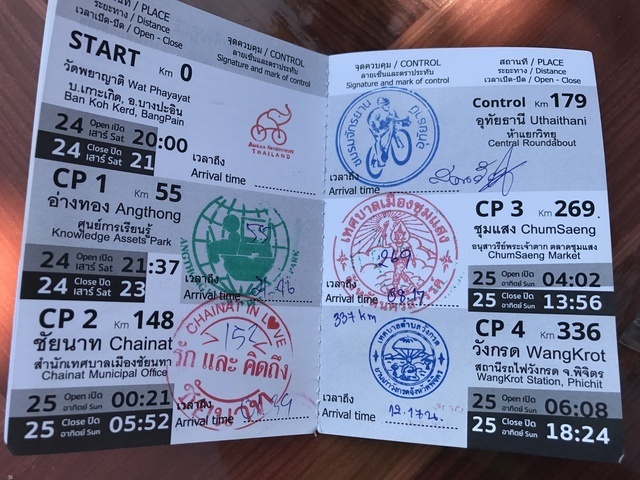 สถานที่ / PLACE
ระยะทาง / Distance
เวลาเปิด-ปิด / Open - Close
จุดควบคุม / CONTROL
ลายเซ็นและตราประทับ
Signature and mark of control
START Km 0
วัดพยาญาติ Wat Phayayat
บ.เกาะเกิด, อ.บางปะอิน
Ban Koh Kerd, BangPain
24 Open เปิด เสาร์ Sat 20:00
24 Close ปิด เสาร์ Sat 21
THAILAND
เวลาถึง
Arrival time
CP 1 Km 55
อ่างทอง Angthong
ศูนย์การเรียนรู้
Knowledge Assets Park
24 Open เปิด เสาร์ Sat 21:37
24 Close ปิด เสาร์ Sat 23
55
เวลาถึง
Arrival time
CP 2 Km 148
ชัยนาท Chainat
สำนักเทศบาลเมืองชัยนาท
Chainat Municipal Office
25 Open เปิด อาทิตย์ Sun 00:21
25 Close ปิด อาทิตย์ Sun 05:52
CHAINAT IN LOVE
152
รัก และ คิดถึง
เวลาถึง
Arrival time
จุดควบคุม / CONTROL
ลายเซ็นและตราประทับ
Signature and mark of control
สถานที่ / PLACE
ระยะทาง / Distance
เวลาเปิด-ปิด / Open - Close
Control Km 179
อุทัยธานี Uthaithani
ห้าแยกวิทยุ
Central Roundabout
ชมรมจักรยาน
เวลาถึง
Arrival time
CP 3 Km 269
ชุมแสง ChumSaeng
อนุสาวรีย์พระเจ้าตาก ตลาดชุมแสง
ChumSaeng Market
25 Open เปิด อาทิตย์ Sun 04:02
25 Close ปิด อาทิตย์ Sun 13:56
เทศบาลเมืองชุมแสง
269
เวลาถึง
Arrival time
337 km
CP 4 Km 336
วังกรด WangKrot
สถานีรถไฟวังกรด จ.พิจิตร
WangKrot Station, Phichit
25 Open เปิด อาทิตย์ Sun 06:08
25 Close ปิด อาทิตย์ Sun 18:24
เทศบาลตำบลวังกรด
เวลาถึง
Arrival time
12.17น.